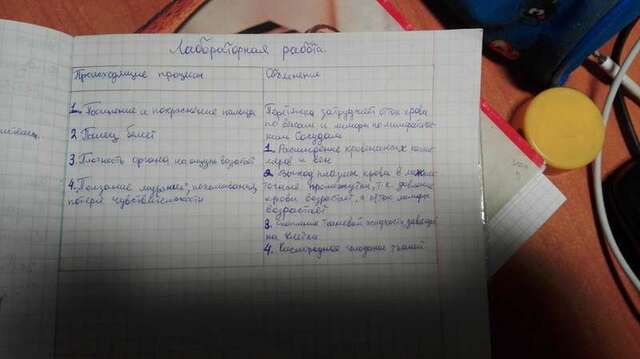 Лабораторная работа.
Происходящие процессы
Объяснение
1. Посинение и покраснение пальца
2 Палец белеет
3. Плотность органа на ощупь
4. Ползание "мурашек", покалывание,
потеря чувствительности
Перетяжка затрудняет отток крови
по венам и лимфы по лимфатичес-
ким сосудам
1. Расширение кровеносных капил-
ляров и вен
2 Выход плазмы крови в межкле-
точные промежутки, т.к. давление
крови возрастает, и отток лимфы
возрастает
3. тканевой жидкости
на клетки
4. Кислородное голодание тканей